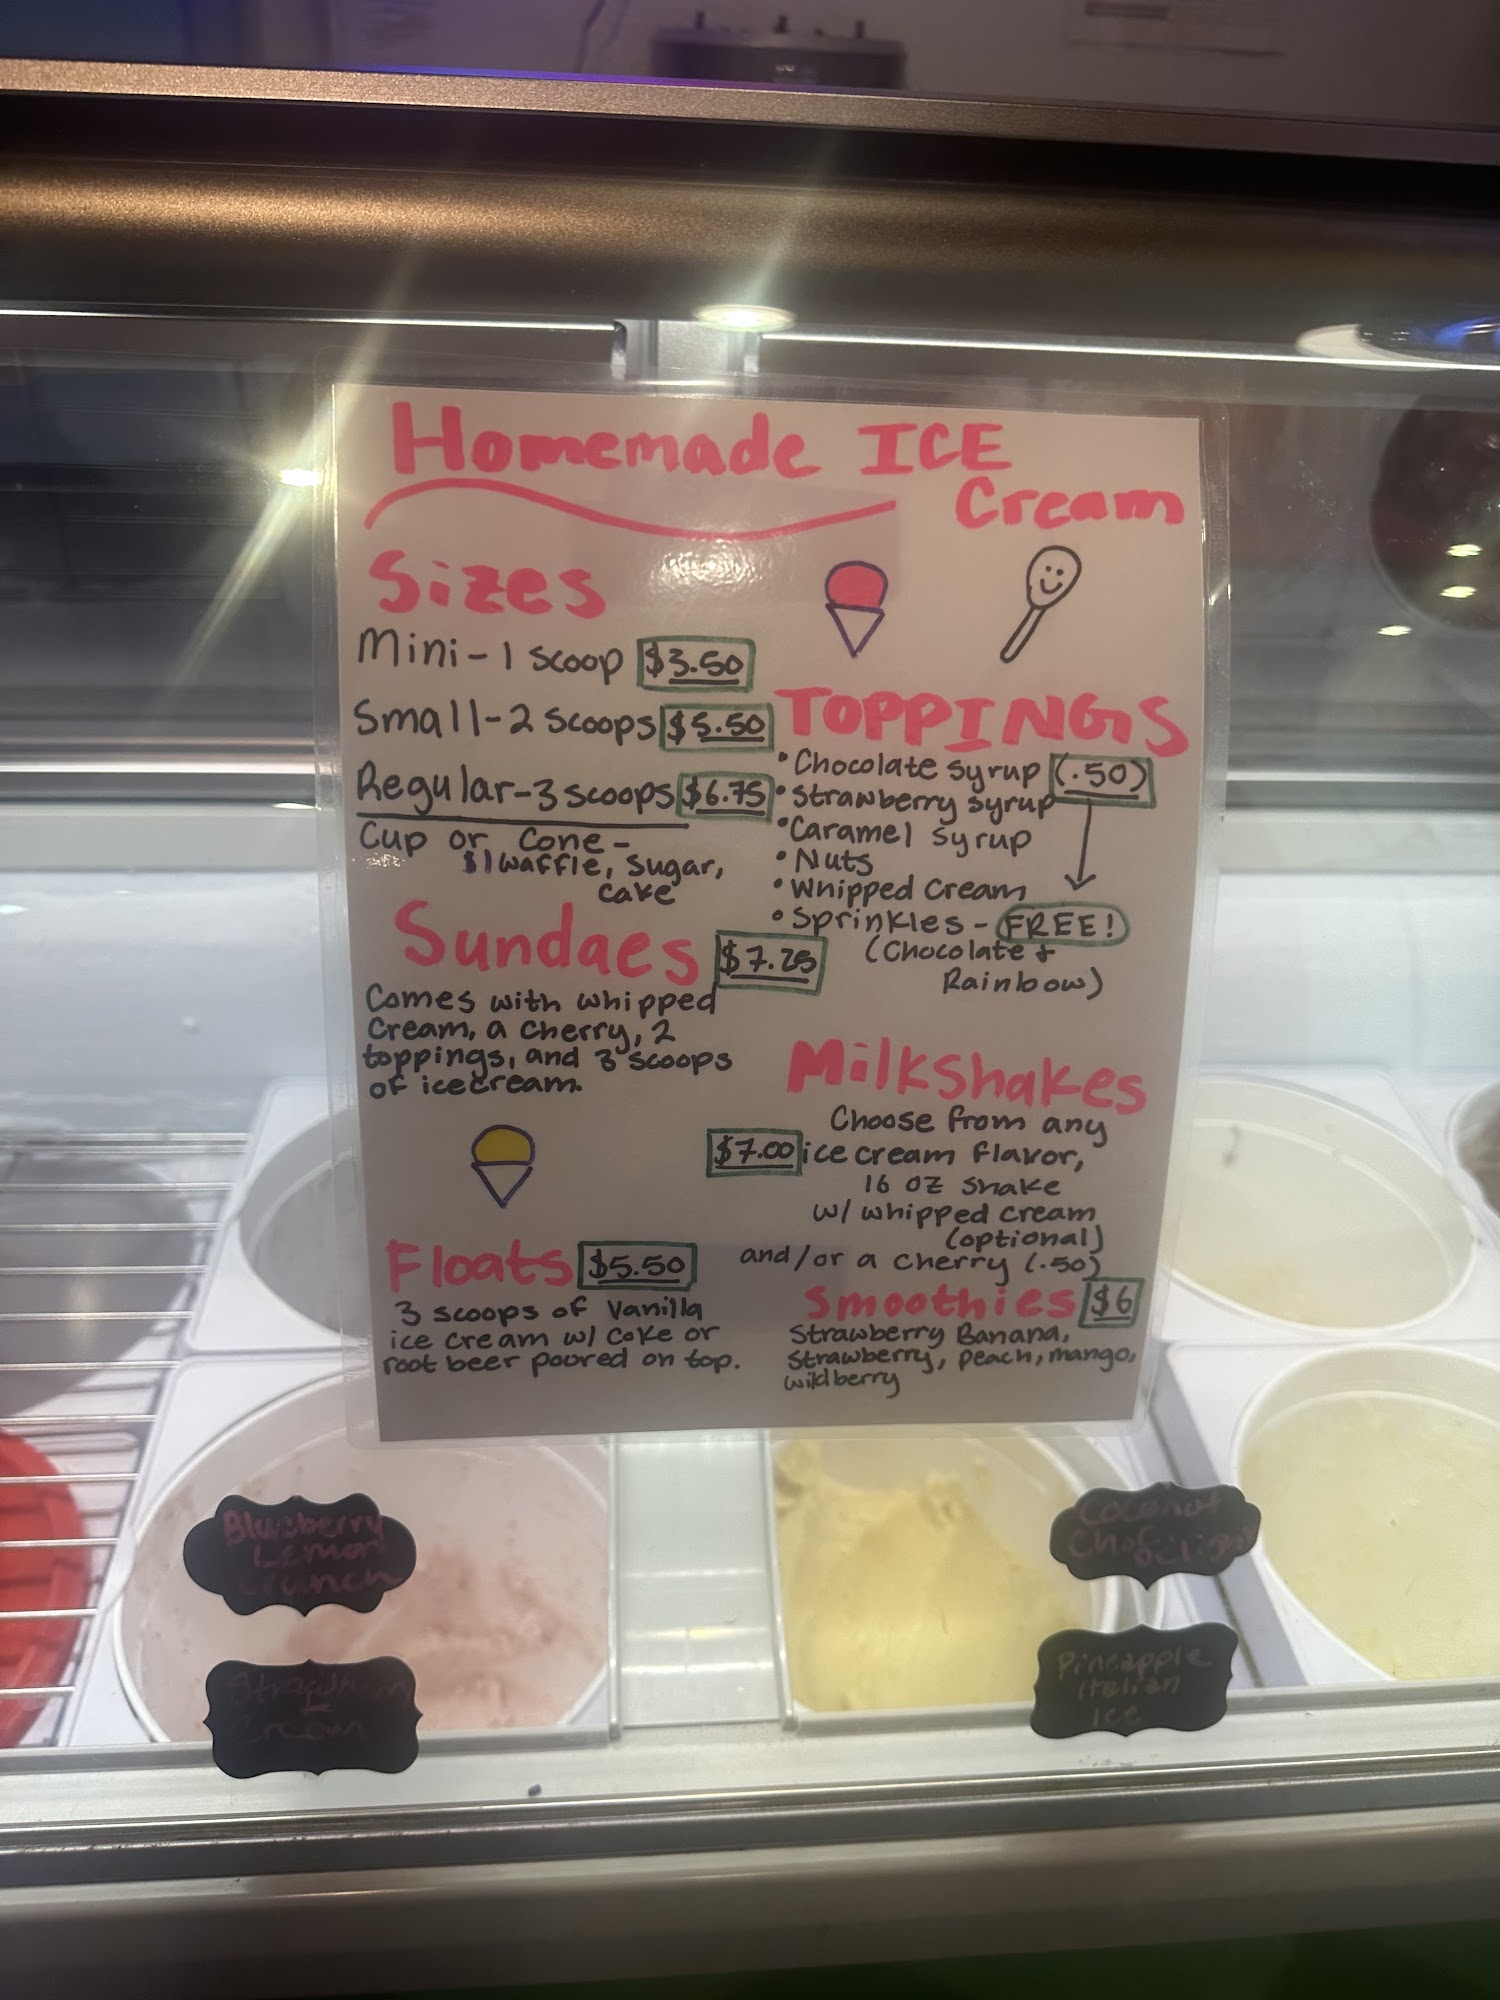 Homemade ICE
Cream
Sizes
Mini-1 scoop $3.50
Small-2 scoops $5.50
Regular-3 scoops $6.75
Cup or Cone-
$1 waffle, sugar,
cake
TOPPINGS
• Chocolate syrup (.50)
• Strawberry syrup
• Caramel syrup
• Nuts
• Whipped Cream
• Sprinkles - FREE!
(Chocolate +
Rainbow)
Sundaes $7.25
Comes with whipped
Cream, a cherry, 2
toppings, and 3 scoops
of icecream.
Milkshakes
Choose from any
$7.00 ice cream flavor,
16 oz shake
w/ whipped cream
(optional)
and/or a cherry (.50)
Floats $5.50
3 scoops of Vanilla
ice cream w/ coke or
root beer poured on top.
Smoothies $6
Strawberry Banana,
Strawberry, peach, mango,
wildberry
Blueberry
Lemon
Crunch
Cream
Coconut
Pineapple
Italian
Ice